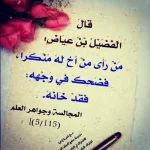 قال
الفضيل بن عياض:
من رأى من أخ له منكرا،
فضحك في وجهه،
فقد خانه.
المجالسة وجواهر العلم
(5/115)]